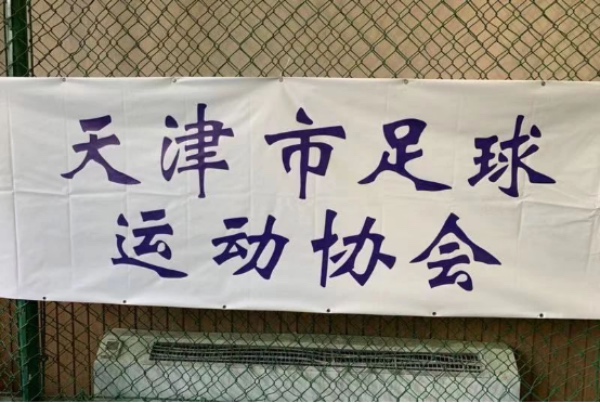 天津市足球
运动协会